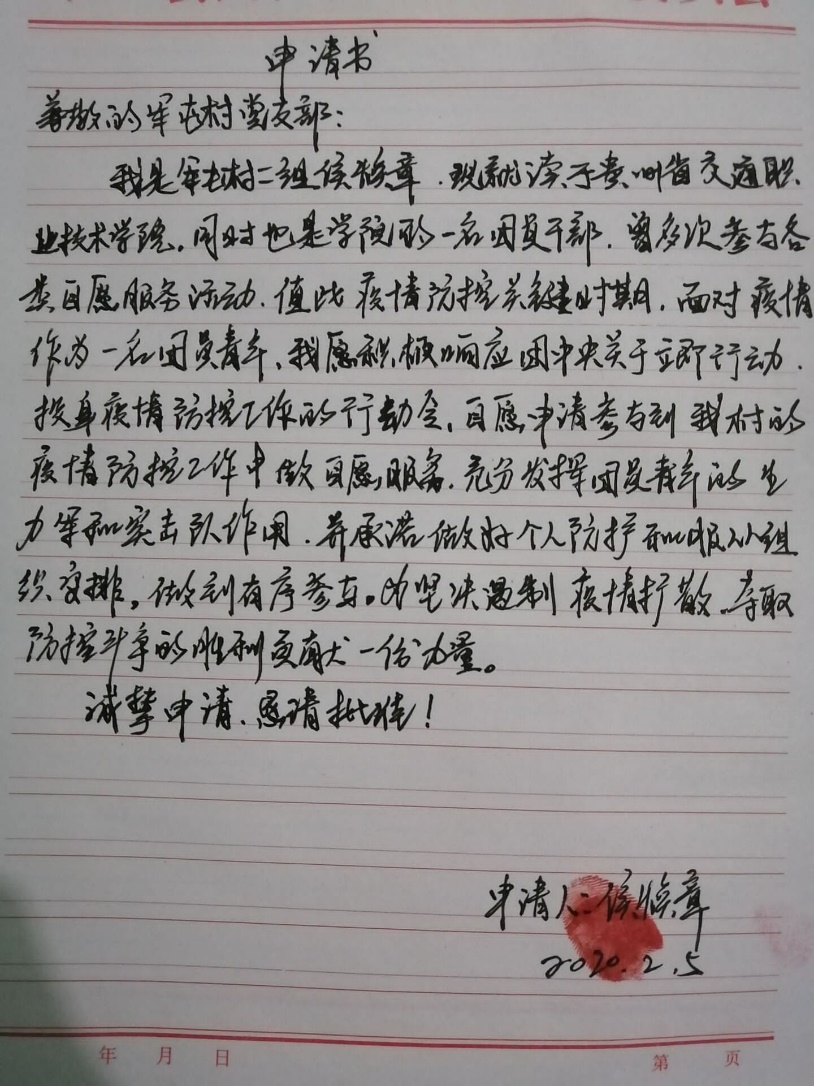 申请书
尊敬的军屯村党支部：
我是军屯村二组侯焕章，现就读于贵州省交通职
业技术学院。同时也是学院的一名团员干部，曾多次参与各
类自愿服务活动，值此疫情防控关键时期，面对疫情
作为一名团员青年，我愿积极响应团中央关于立即行动，
投身疫情防控工作的行动令，自愿申请参与到我村的
疫情防控工作中做自愿服务，充分发挥团员青年的生
力军和突击队作用，并承诺做好个人防护和服从组
织安排，做到有序参与。为坚决遏制疫情扩散、夺取
防控斗争的胜利贡献一份力量。
诚挚申请，恳请批准！
申请人：侯焕章
2020.2.5
年 月 日
第 页